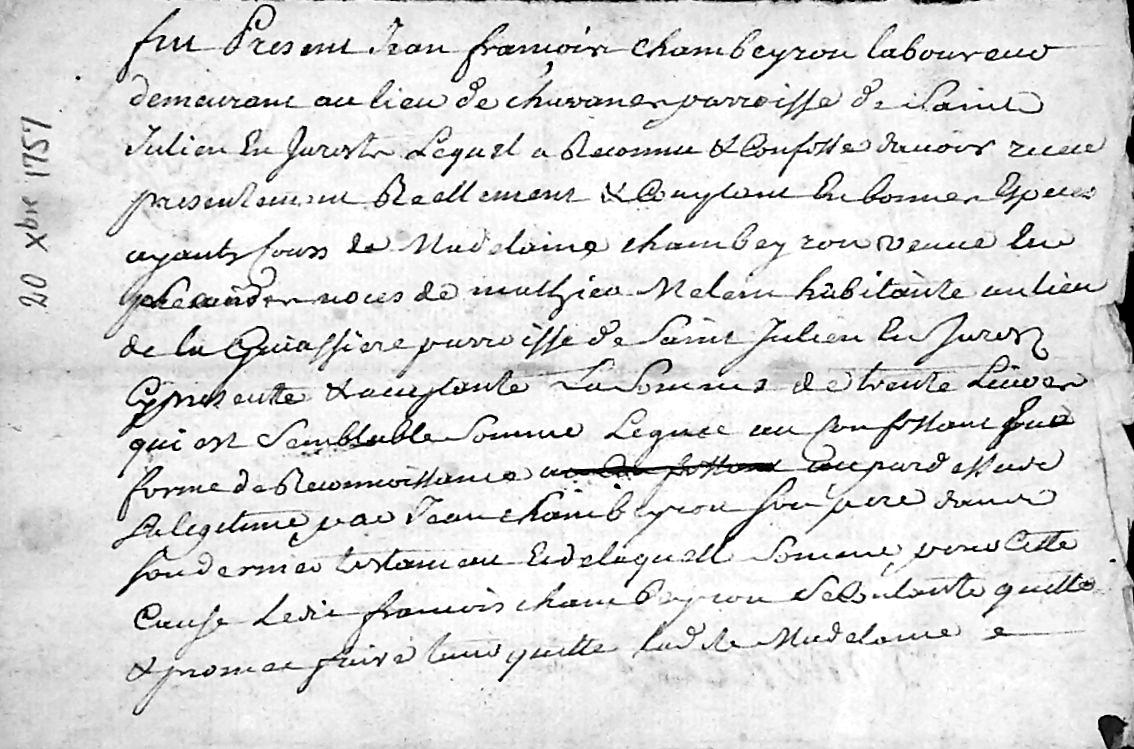 fut Present Jean francois chambeyron laboureur
demeurant au lieu de chavanes parroisse de Saint
Julien En Jarest Lequel a Reconnu & Confesse davoir receu
presentement Reellement & Comptant En bonnes Especes
ayants Cours de Madelaine chambeyron veuve En
secondes noces de mathieu Melem habitante au lieu
de la Guiassiere parroisse de Saint Julien En Jarest
Cy presentte & acceptante La Somme de trente Livres
qui est Semblable Somme Leguee au Confessant Sous
forme de Reconnoissance par dessus
Sa legitime par Jean chambeyron Son pere dans
Son dernier testament & de laquelle Somme pour Cette
Cause Ledit francois chambeyron Se Contante quitte
& promet faire tenir quitte lad. de Madelaine
20 Xbre 1757